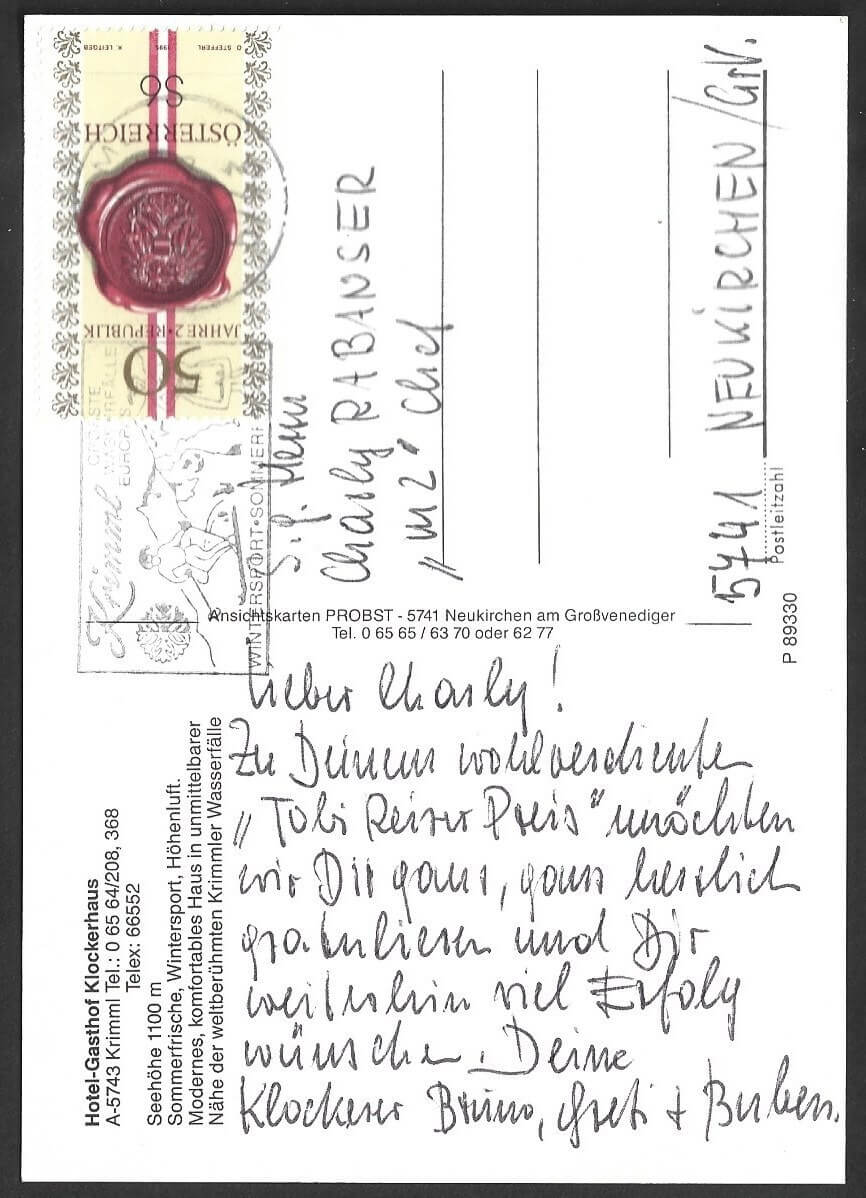 Hotel-Gasthof Klockerhaus
A-5743 Krimml Tel.: 0 65 64/208, 368
Telex: 66552
Seehöhe 1100 m
Sommerfrische, Wintersport, Höhenluft.
Modernes, komfortables Haus in unmittelbarer
Nähe der weltberühmten Krimmler Wasserfälle
Lieber Charly!
Zu Deinem wohlverdienten
„Tobi Reiser Preis" möchten
wir Dir ganz, ganz herzlich
gratulieren und Dir
weiterhin viel Erfolg
wünschen. Deine
Klockerer Bruno, Greti + Buben.
Ansichtskarten PROBST - 5741 Neukirchen am Großvenediger
Tel. 0 65 65 / 63 70 oder 62 77
P 89330
50
JAHRE 2. REPUBLIK
ÖSTERREICH
S6
O. STEFFERL 1995 K. LEITGEB
Krimml
WASSERFÄLLE
EUROPAS
WINTERSPORT•SOMMERF
S. g. Herrn
Charly RABANSER
„m2" Chef
5741 NEUKIRCHEN/GrV.
Postleitzahl